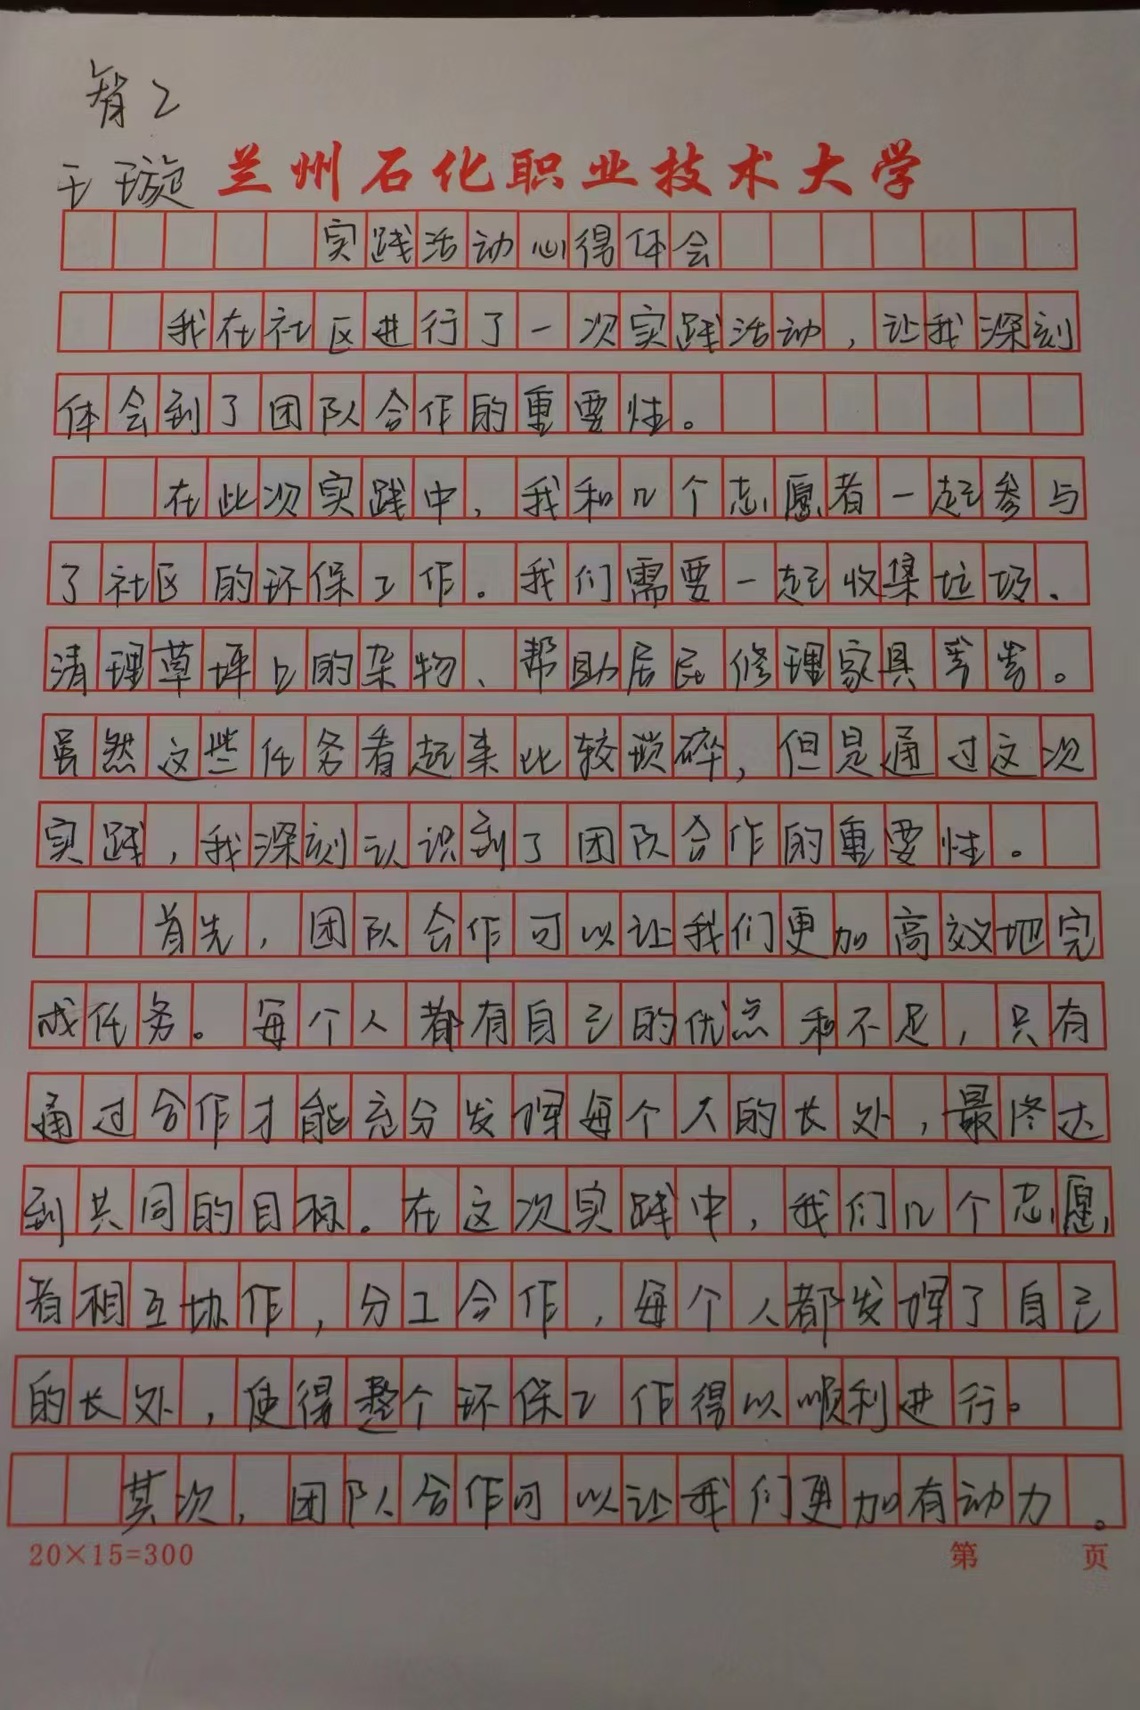 智2
王璇
兰州石化职业技术大学
实践活动心得体会
我在社区进行了一次实践活动，让我深刻
体会到了团队合作的重要性。
在此次实践中，我和几个志愿者一起参与
了社区的环保工作。我们需要一起收集垃圾、
清理草坪上的杂物、帮助居民修理家具等等。
虽然这些任务看起来比较琐碎，但是通过这次
实践，我深刻认识到了团队合作的重要性。
首先，团队合作可以让我们更加高效地完
成任务。每个人都有自己的优点和不足，只有
通过合作才能充分发挥每个人的长处，最终达
到共同的目标。在这次实践中，我们几个志愿
者相互协作，分工合作，每个人都发挥了自己
的长处，使得整个环保工作得以顺利进行。
其次，团队合作可以让我们更加有动力。
20×15=300
第 页